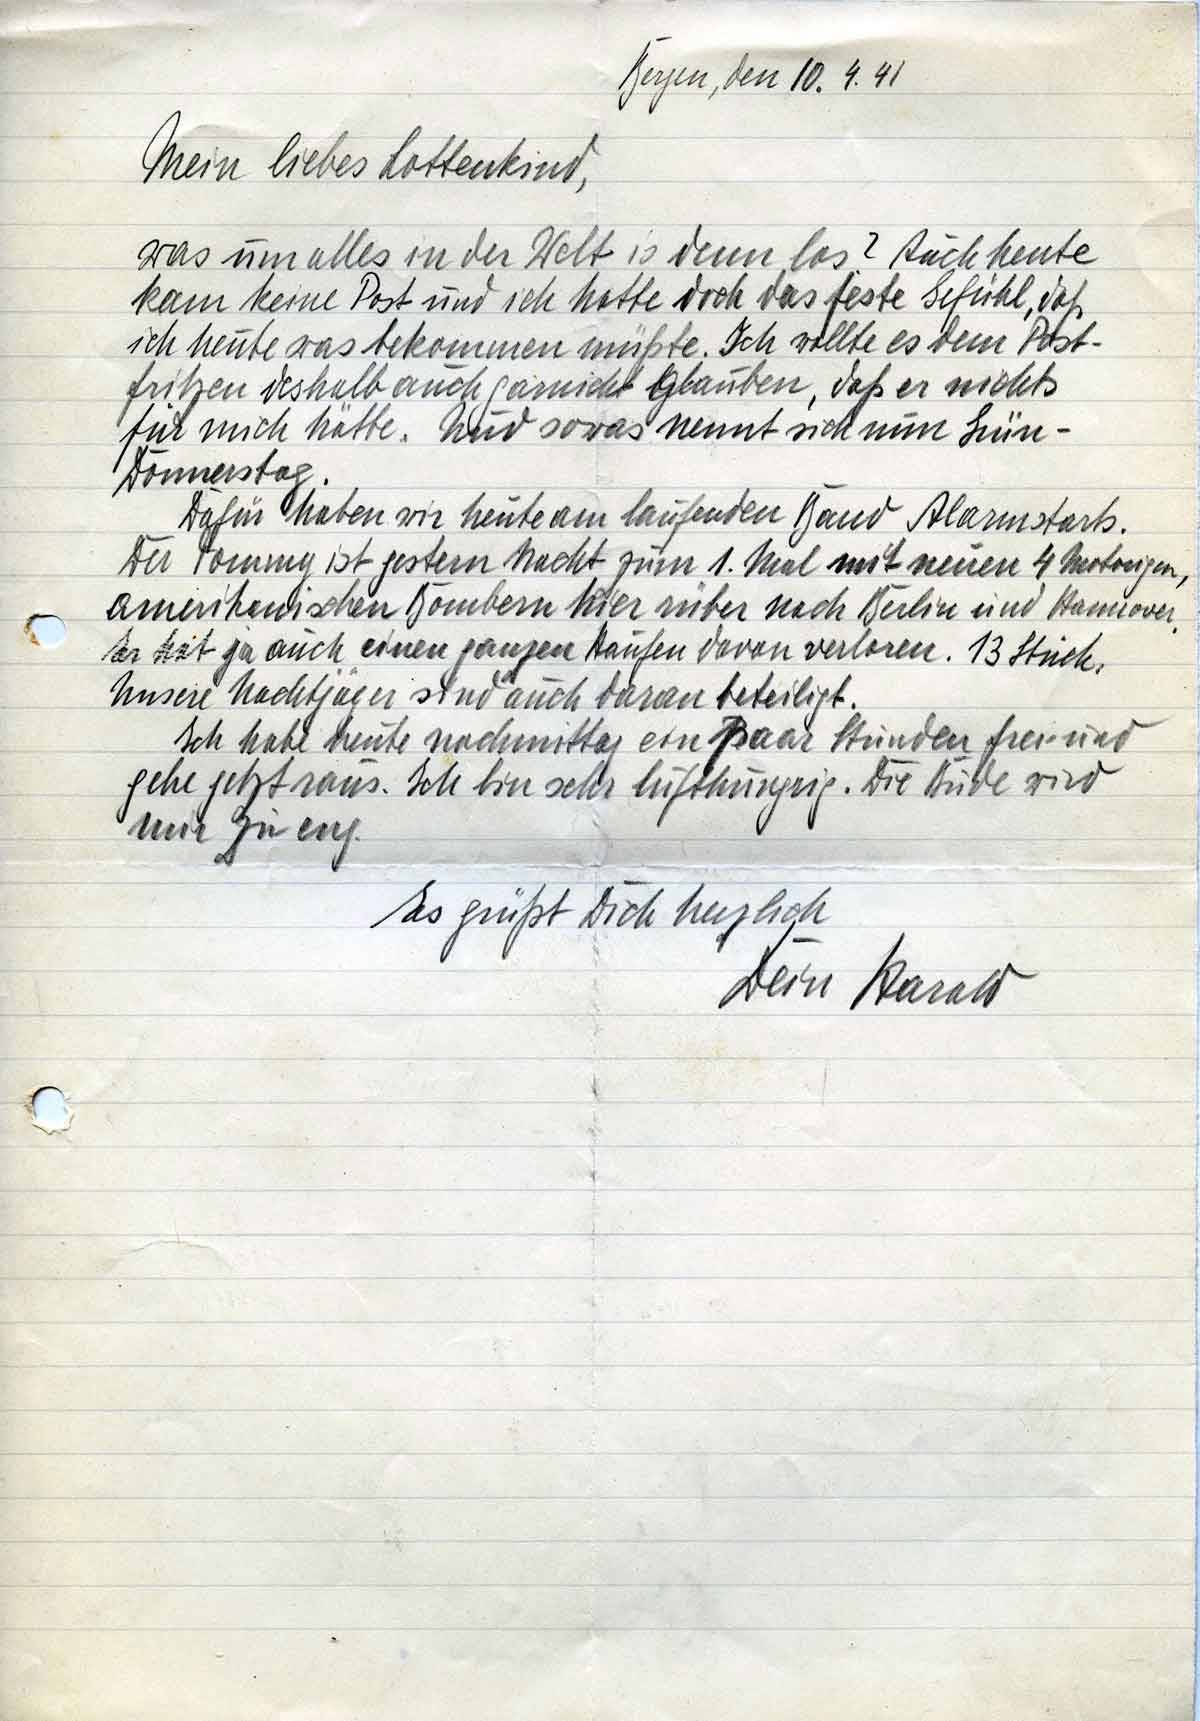 Bergen, den 10. 4. 41
Mein liebes Lottenkind,
was um alles in der Welt is denn los? Auch heute
kam keine Post und ich hatte doch das feste Gefühl, daß
ich heute was bekommen müßte. Ich wollte es dem Post-
fritzen deshalb auch garnicht glauben, daß er nichts
für mich hätte. Und sowas nennt sich nun Grün-
Donnerstag.
Dafür haben wir heute am laufenden Band Alarmstarts.
Der Tommy ist gestern Nacht zum 1. Mal mit neuen 4 Motorigen,
amerikanischen Bombern hier rüber nach Berlin und Hannover.
Er hat ja auch einen ganzen Haufen davon verloren. 13 Stück.
Unsere Nachtjäger sind auch daran beteiligt.
Ich habe heute nachmittag ein Paar Stunden frei und
gehe jetzt raus. Ich bin sehr lufthungrig. Die Bude wird
mir zu eng.
Es grüßt Dich herzlich
Dein Harald